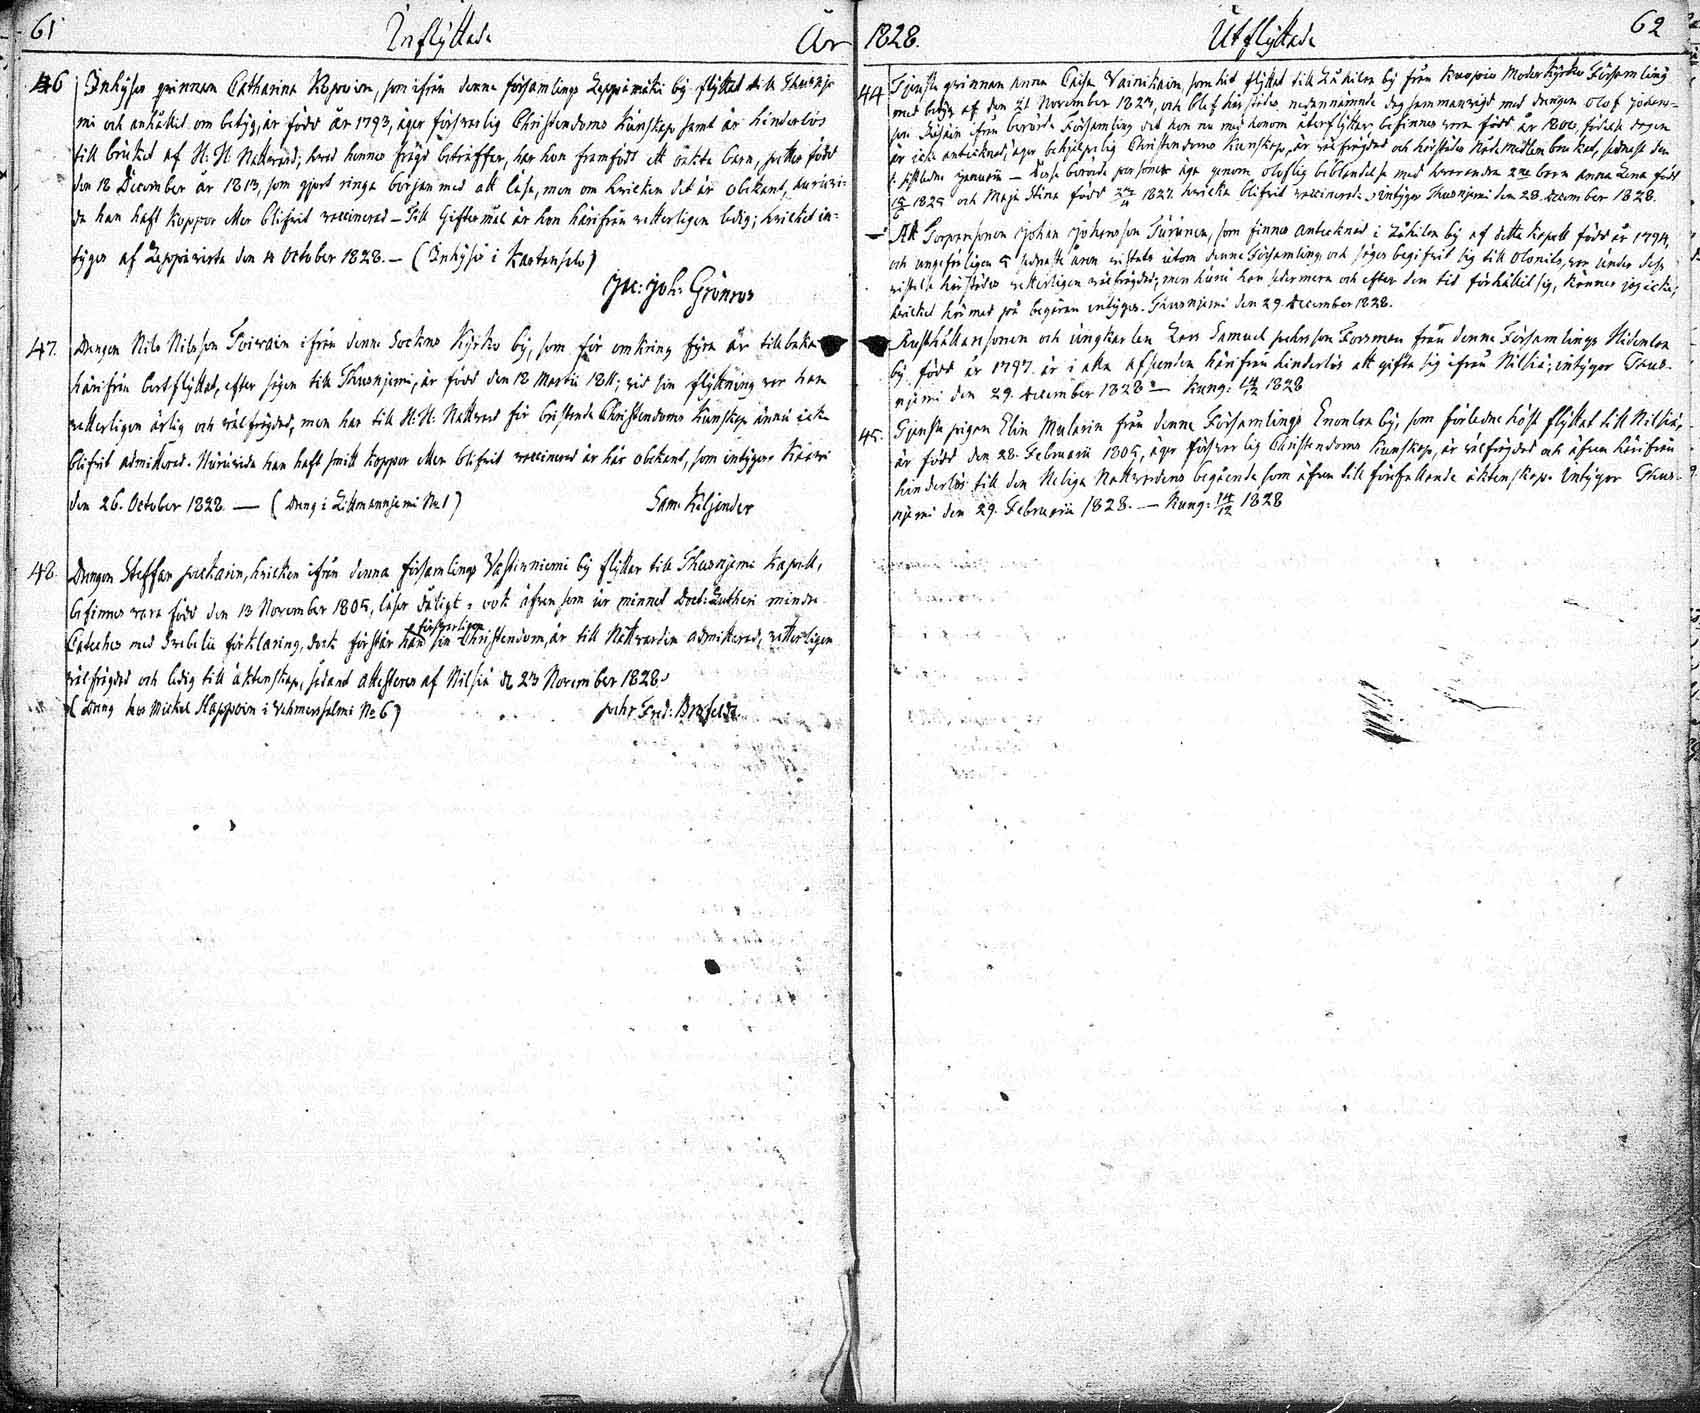 61 Inflyttade År
46 Inhyses qvinnan Catharina , som ifrån denne församlings Leppämäki by flyttat till Thusnje-
mi och anhållit om betyg, är född år 1793, äger försvarlig Christendoms Kunskap samt är hinderlös
till bruket af H: H: Nattvard; hvad hennes frägd beträffar, har hon framfödt ett oäkta barn, Petter född
den 18 December år 1813, som gjort ringa början med att läsa, men om hvilken det är obekant, huruvi-
da han haft koppor eller blifvit vaccinerad – Till Giftermål är hon härifrån vetterligen ledig; hvilket in-
tygas af Leppävirta den 4 October 1828. – (Inhyses i Kartansalo)
Jac: Joh: Grönros
47. Drengen Nils Nilsson Toivain ifrån denne Sockns Kyrko by, som för omkring fyra år tillbaka
härifrån bortflyttat, efter sägen till Thusnjemi, är född den 18 Martii 1811; vid sin flyttning var han
vetterligen ärlig och välfrägdad, men har till H: H: Nattvard för bristande Christendoms Kunskap ännu icke
blifvit admitterad. Huruvida han haft smitt koppor eller blifvit vaccinerad är här obekant, som intygar Kaavi
den 26. October 1828. — (Dräng i Litmanniemi No 1) Sam. Kiljander
48. Drengen Steffan , hvilken ifrån denna församlings Västinniemi by flyttar till Thusnjemi Kapell,
befinnes vara född den 13 November 1805, läser dåligt, och äfven som ur minnet Doct: Lutheri mindre
Cateches med Svebelii förklaring, dock förstår han försvarligen sin Christendom, är till Nattvarden admitterad, vetterligen
välfrägdad och ledig till äktenskap, sådant attesteras af Nilsiä d. 23 November 1828.
(Dräng hos Mickel Happoin i Vehmersalmi No 6) Pehr Fred:
1828. Utflyttade 62
44 Tjenste qvinnan Anna Caisa Vainikain, som hit flyttat till Lähilen by från Kuopio Moderkyrko Församling
med betyg af den 21 November 1827, och blef härstädes nedannämnde dag sammanvigd med drengen Olof
son ifrån berörde Församling dit hon nu med honom återflyttar, befinnes vara född år 1800, födsels dagen
är icke antecknad, äger behjelplig Christendoms Kunskap, är välfrägdad och härstädes Nådemedlen brukat, sednast den
sistledne Januarii — Desse berörde personer äga genom oloflig beblandelse med hvarandra 2ne barn Anna Lena född
1825 och Maja Stina född 1827. hvilka blifvit vaccinerade, intygar Thusnjemi den 28. December 1828.
— Att Torparesonen Johan Johansson Turunen, som finnes antecknad i Lähilen by af detta Kapell född år 1794,
och ungefärligen 5 sednaste åren vistats utom denne Församling, och säges begifvit sig till Olonits, var under dess
vistelse härstädes vetterligen välfrägdad; men huru han sedermera och efter den tid förhållit sig, känner jag icke;
hvilket härmed på begäran intygas. Thusnjemi den 29. December 1828.
Rusthållaresonen och ungkarlen Lars Samuel Pehrsson Forsman från denne Församlings Hidenlax
by född år 1797. är i alla afseenden härifrån hinderlös att gifta sig ifrån Nilsiä; intygar Thus-
njemi den 29. December 1828. — Kung: 14/12 1828
45. Tjenste pigan Elin från denne Församlings Enonlax by, som förledne höst flyttat till Nilsiä,
är född den 28. Februarii 1805, äger försvarlig Christendoms Kunskap, är välfrägdad och äfven härifrån
hinderlös till den Heliga Nattvardens begående som äfven till förefallande äktenskap. Intygar Thus-
njemi den 29. Februarii 1828. — Kung: 14/12 1828